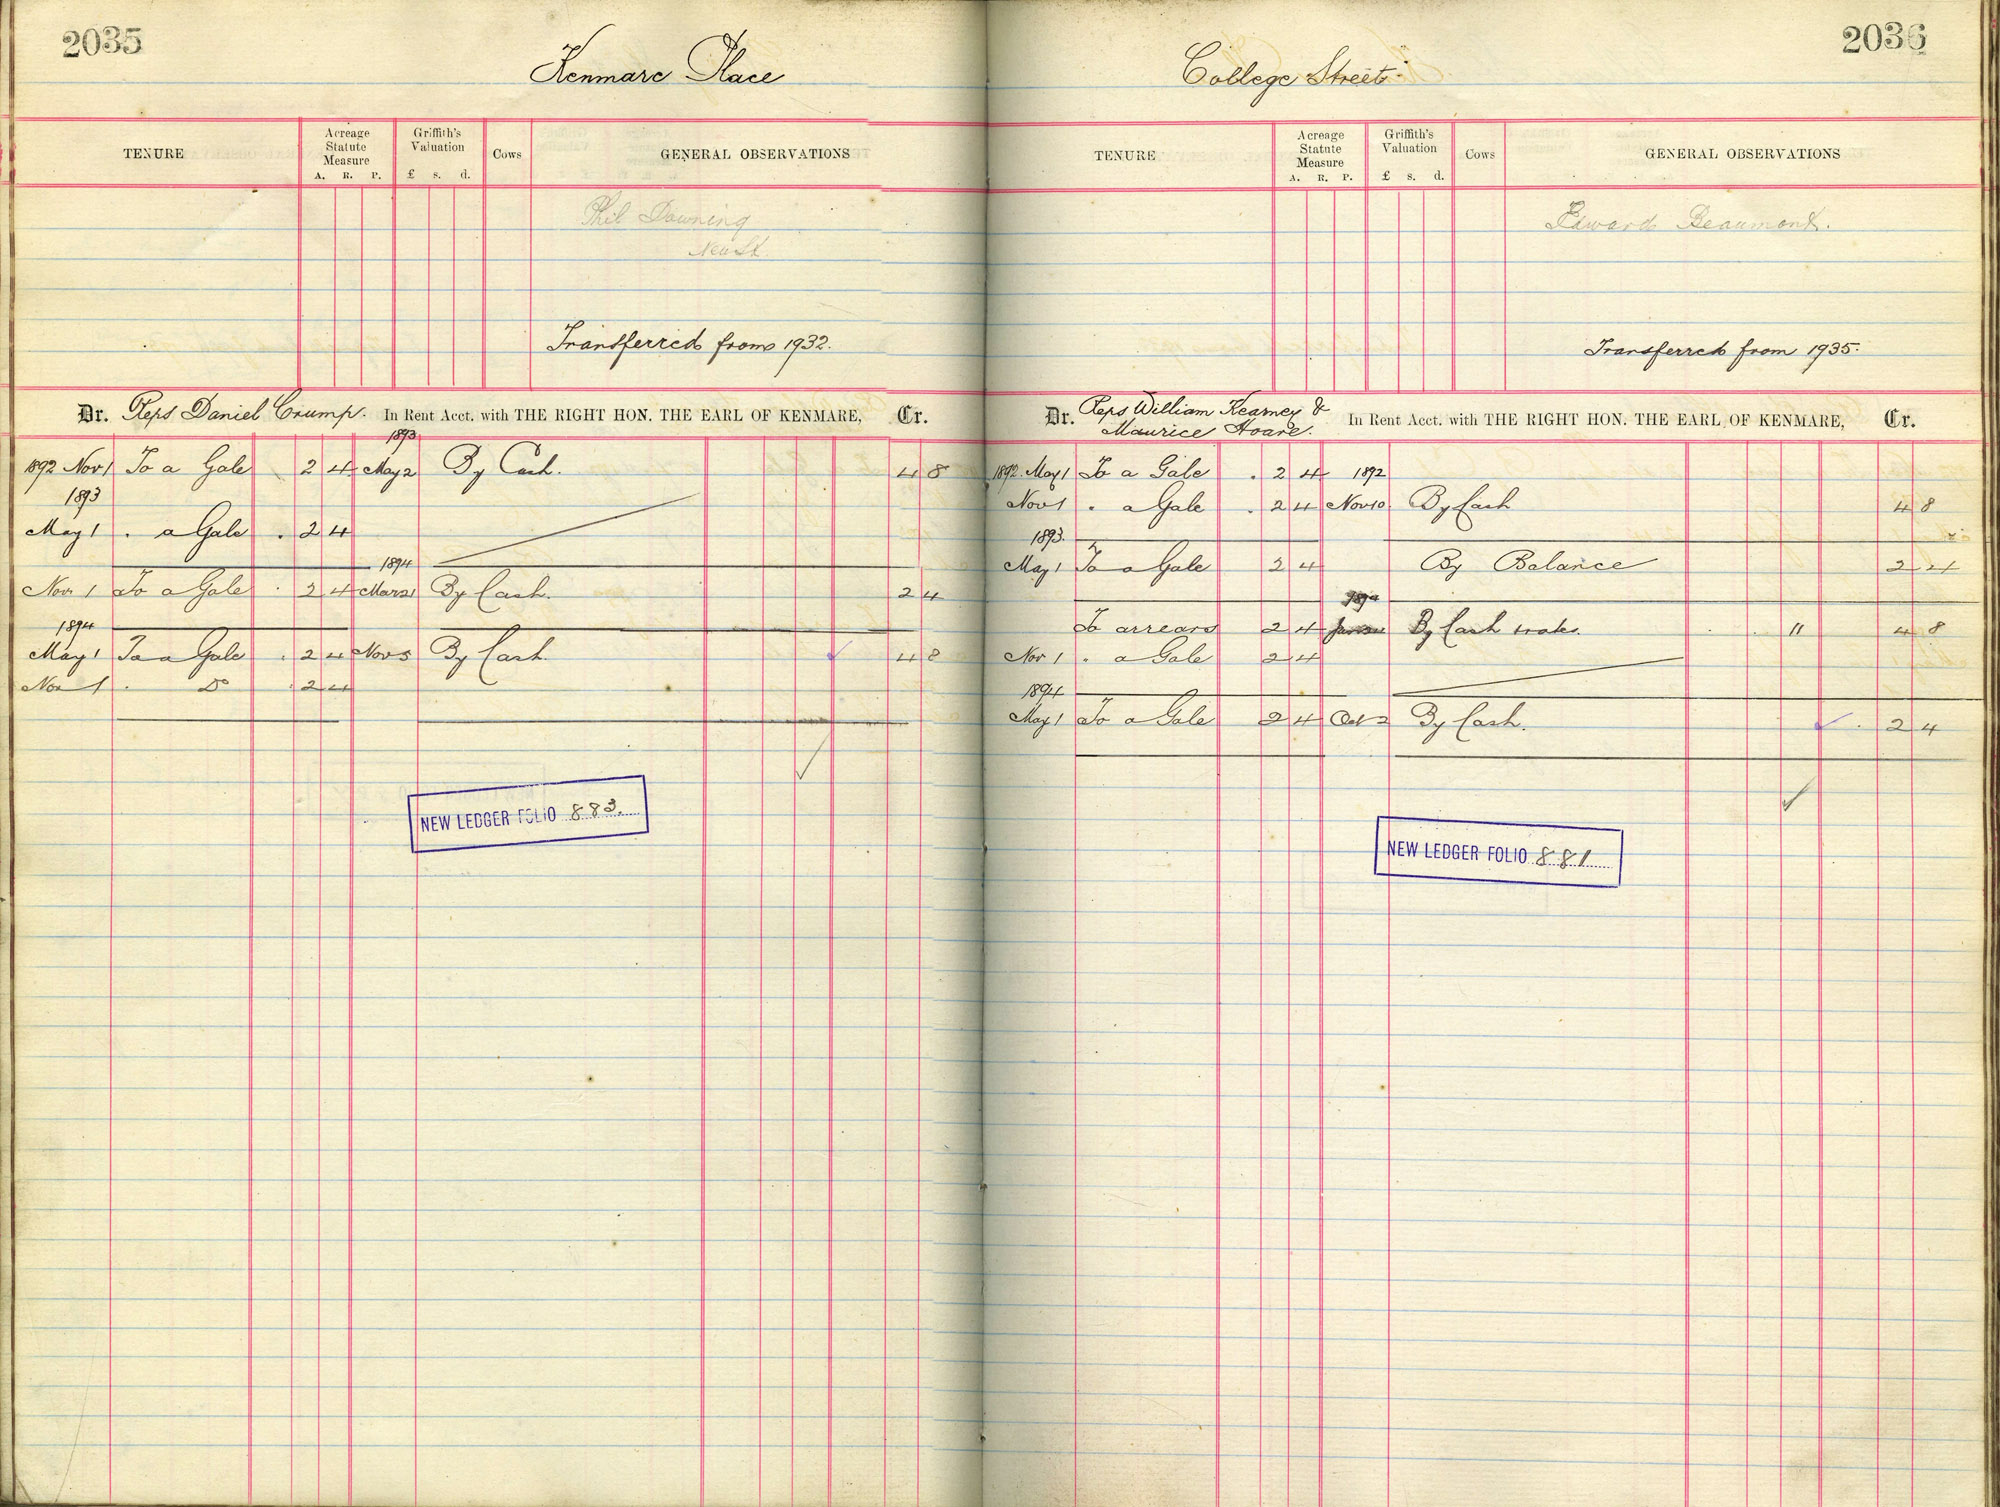 2035
Kenmare Place
TENURE Acreage Statute Measure A. R. P. Griffith's Valuation £ s. d. Cows GENERAL OBSERVATIONS
Phil Downing
New St
Transferred from 1932.
Dr. Reps Daniel Crump. In Rent Acct. with THE RIGHT HON. THE EARL OF KENMARE, Cr.
1893
1892 Nov 1 To a Gale 2 4 May 2 By Cash. 4 8
1893
May 1 . a Gale . 2 4
1894
Nov 1 To a Gale . 2 4 Mar 21 By Cash. 2 4
1894
May 1 To a Gale . 2 4 Nov 5 By Cash. 4 8
Nov 1 . Do . 2 4
NEW LEDGER FOLIO 883.
2036
College Street
TENURE Acreage Statute Measure A. R. P. Griffith's Valuation £ s. d. Cows GENERAL OBSERVATIONS
Edward Beaumont.
Transferred from 1935.
Dr. Reps William Kearney & Maurice Hoare. In Rent Acct. with THE RIGHT HON. THE EARL OF KENMARE, Cr.
1892. May 1 To a Gale . 2 4 1892
Nov 1 . a Gale . 2 4 Nov 10. By Cash 4 8
1893.
May 1 To a Gale 2 4 By Balance 2 4
1894
To arrears 2 4 By Cash " 4 8
Nov 1 . a Gale 2 4
1894
May 1 To a Gale 2 4 Oct 2 By Cash. 2 4
NEW LEDGER FOLIO 881